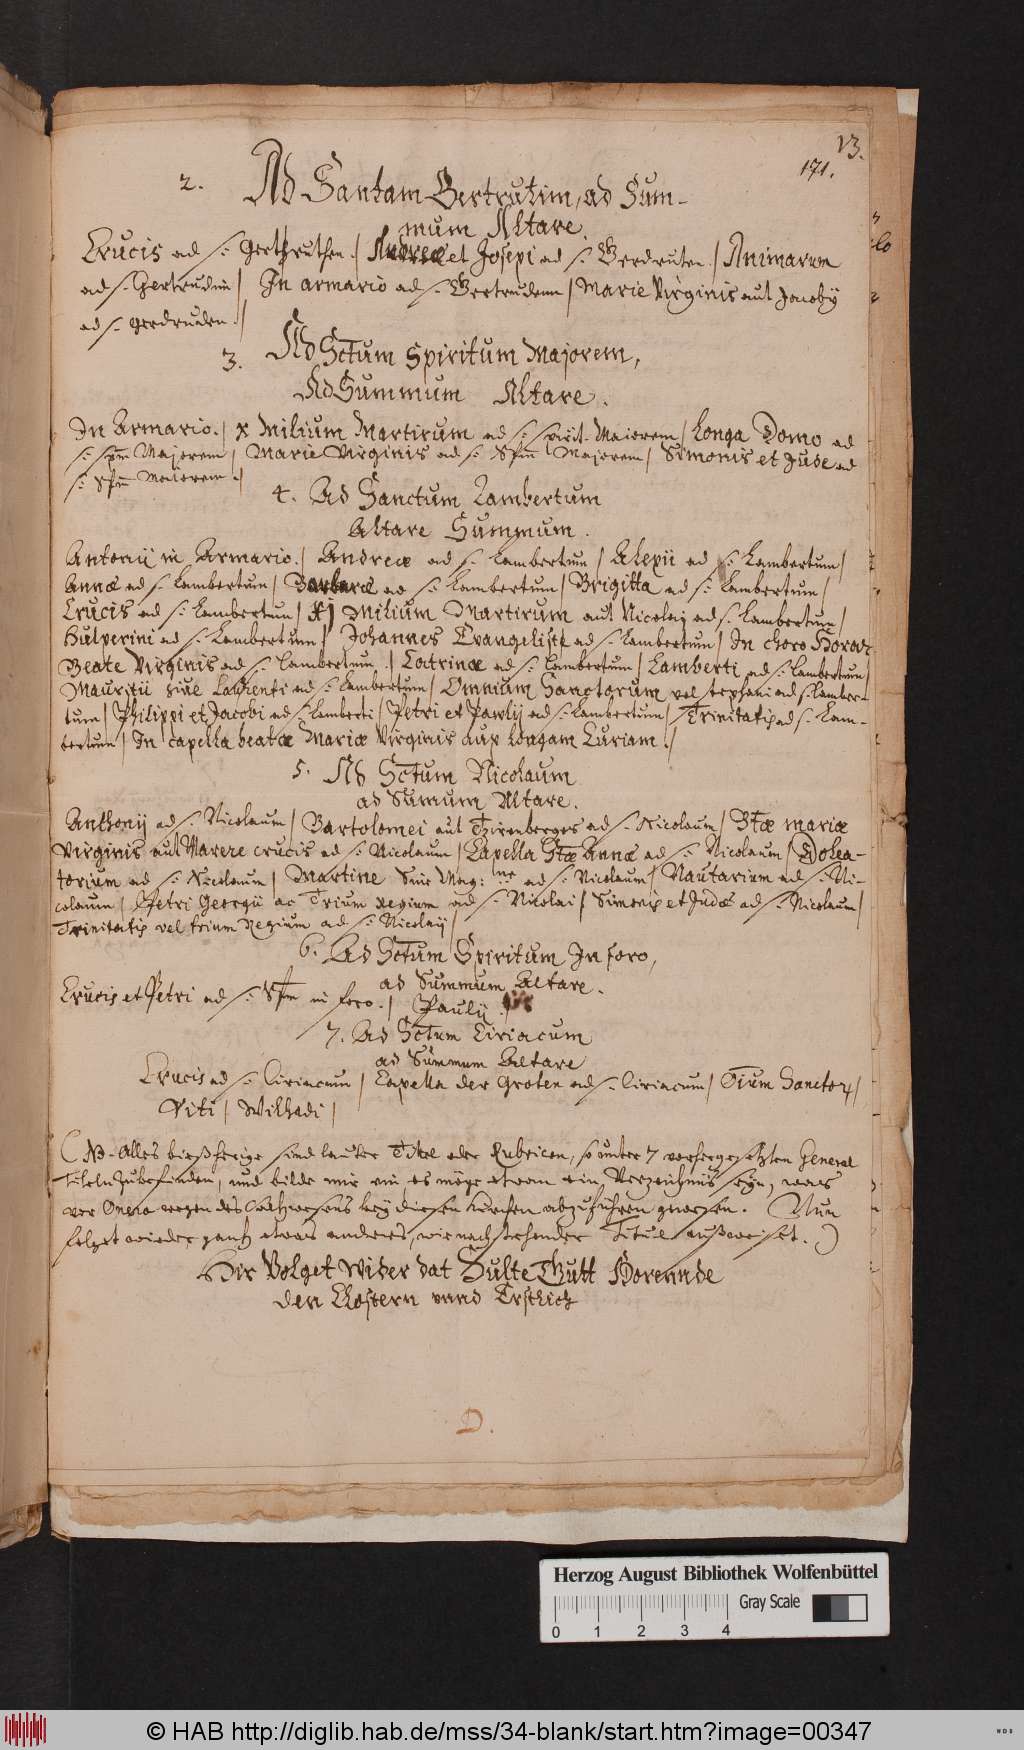 13.
171.
2. Ad Santam Gertrutim, ad Sum-
mum Altare.
Crucis ad s: Gerthruthen. / Andreæ et Josepi ad s: Gerdruten. / Animarum
ad s: Gertrudim / In armario ad s: Gertrudenn / Marie Virginis aut Jacoby
ad s: gerdruden. /
3. Ad Sctum Spiritum Majorem,
Ad Summum Altare.
In Armario. / X Milium Martirum ad s: spirit. Maiorem / Longa Domo ad
s: spm Majorem / Marie Virginis ad s: Spm Majorem / Simonis et Jude ad
s: Spm Maiorem. /
4. Ad Sanctum Lambertum
Altare Summum.
Antonij in Armario. / Andreæ ad s: Lambertum / Alexii ad s: Lambertum /
Annæ ad s: Lambertum / Barbaræ ad s: Lambertum / Brigitta ad s: Lambertum /
Crucis ad s: Lambertum / XI Milium Martirum aut Nicolaj ad s: Lambertum /
Hulperini ad s: Lambertum / Johannes Evangeliste ad s: Lambertum / In choro Horar
Beate Virginis ad s: Lambertum. / Catrinæ ad s: Lambertum / Lamberti ad s: Lambertum /
Mauritii siue Laurenti ad s: Lambertum / Omnium Sanctorum vel stephani ad s: Lamber-
tum / Philippi et Jacobi ad s: Lamberti / Petri et Pawly ad s: Lambertum / Trinitatis ad s: Lam-
bertum / In capella beatæ Mariæ Virginis aup Longam Curiam. /
5. Ad Sctum Nicolaum
ad Sumum Altare.
Anthonij ad s: Nicolaum / Bartolomei aut Tzirenberges ad s: Nicolaum / Btæ mariæ
Virginis aut Marere crucis ad s: Nicolaum / Capella Stæ Annæ ad s: Nicolaum / Dolea-
torium ad s: Nicolaum / Martine Siue Mag: ne ad s: Nicolaum / Nautarium ad s: Ni-
colaum / Petri Georgii ac Trium Regium ad s: Nicolai / Simonis et Judæ ad s: Nicolaum /
Trinitatis vel trium Regium ad s: Nicolaij /
6. Ad Sctum Spiritum In foro,
ad Summum Altare.
Crucis et Petri ad s: Spm in foro. / Paulij. /
7. Ad Sctum Ciriacum
ad Summum Altare
Crucis ad s: Ciriacum / Capella der Groten ad s: Ciriacum / Oium Sanctor /
Viti / Wilhadi /
(NB. Alles bießherige sind lauter Titel oder Rubricen, so unter 7 vorhergesetzten General
Titeln zubefinden, und bilde mir ein es möge etwan ein Verzeichnüs seyn, was
vor Onera wegen des Saltzwesens bey diesen Kirchen abzuführen gewesen. Nun
folget wieder gantz etwas anderes, wie nachstehender Titul außweiset.)
Hir Volget wider dat Sulte Gutt Horennde
den Clostern vnnd Erstlich
D.
Herzog August Bibliothek Wolfenbüttel
Gray Scale
0 1 2 3 4
© HAB http://diglib.hab.de/mss/34-blank/start.htm?image=00347